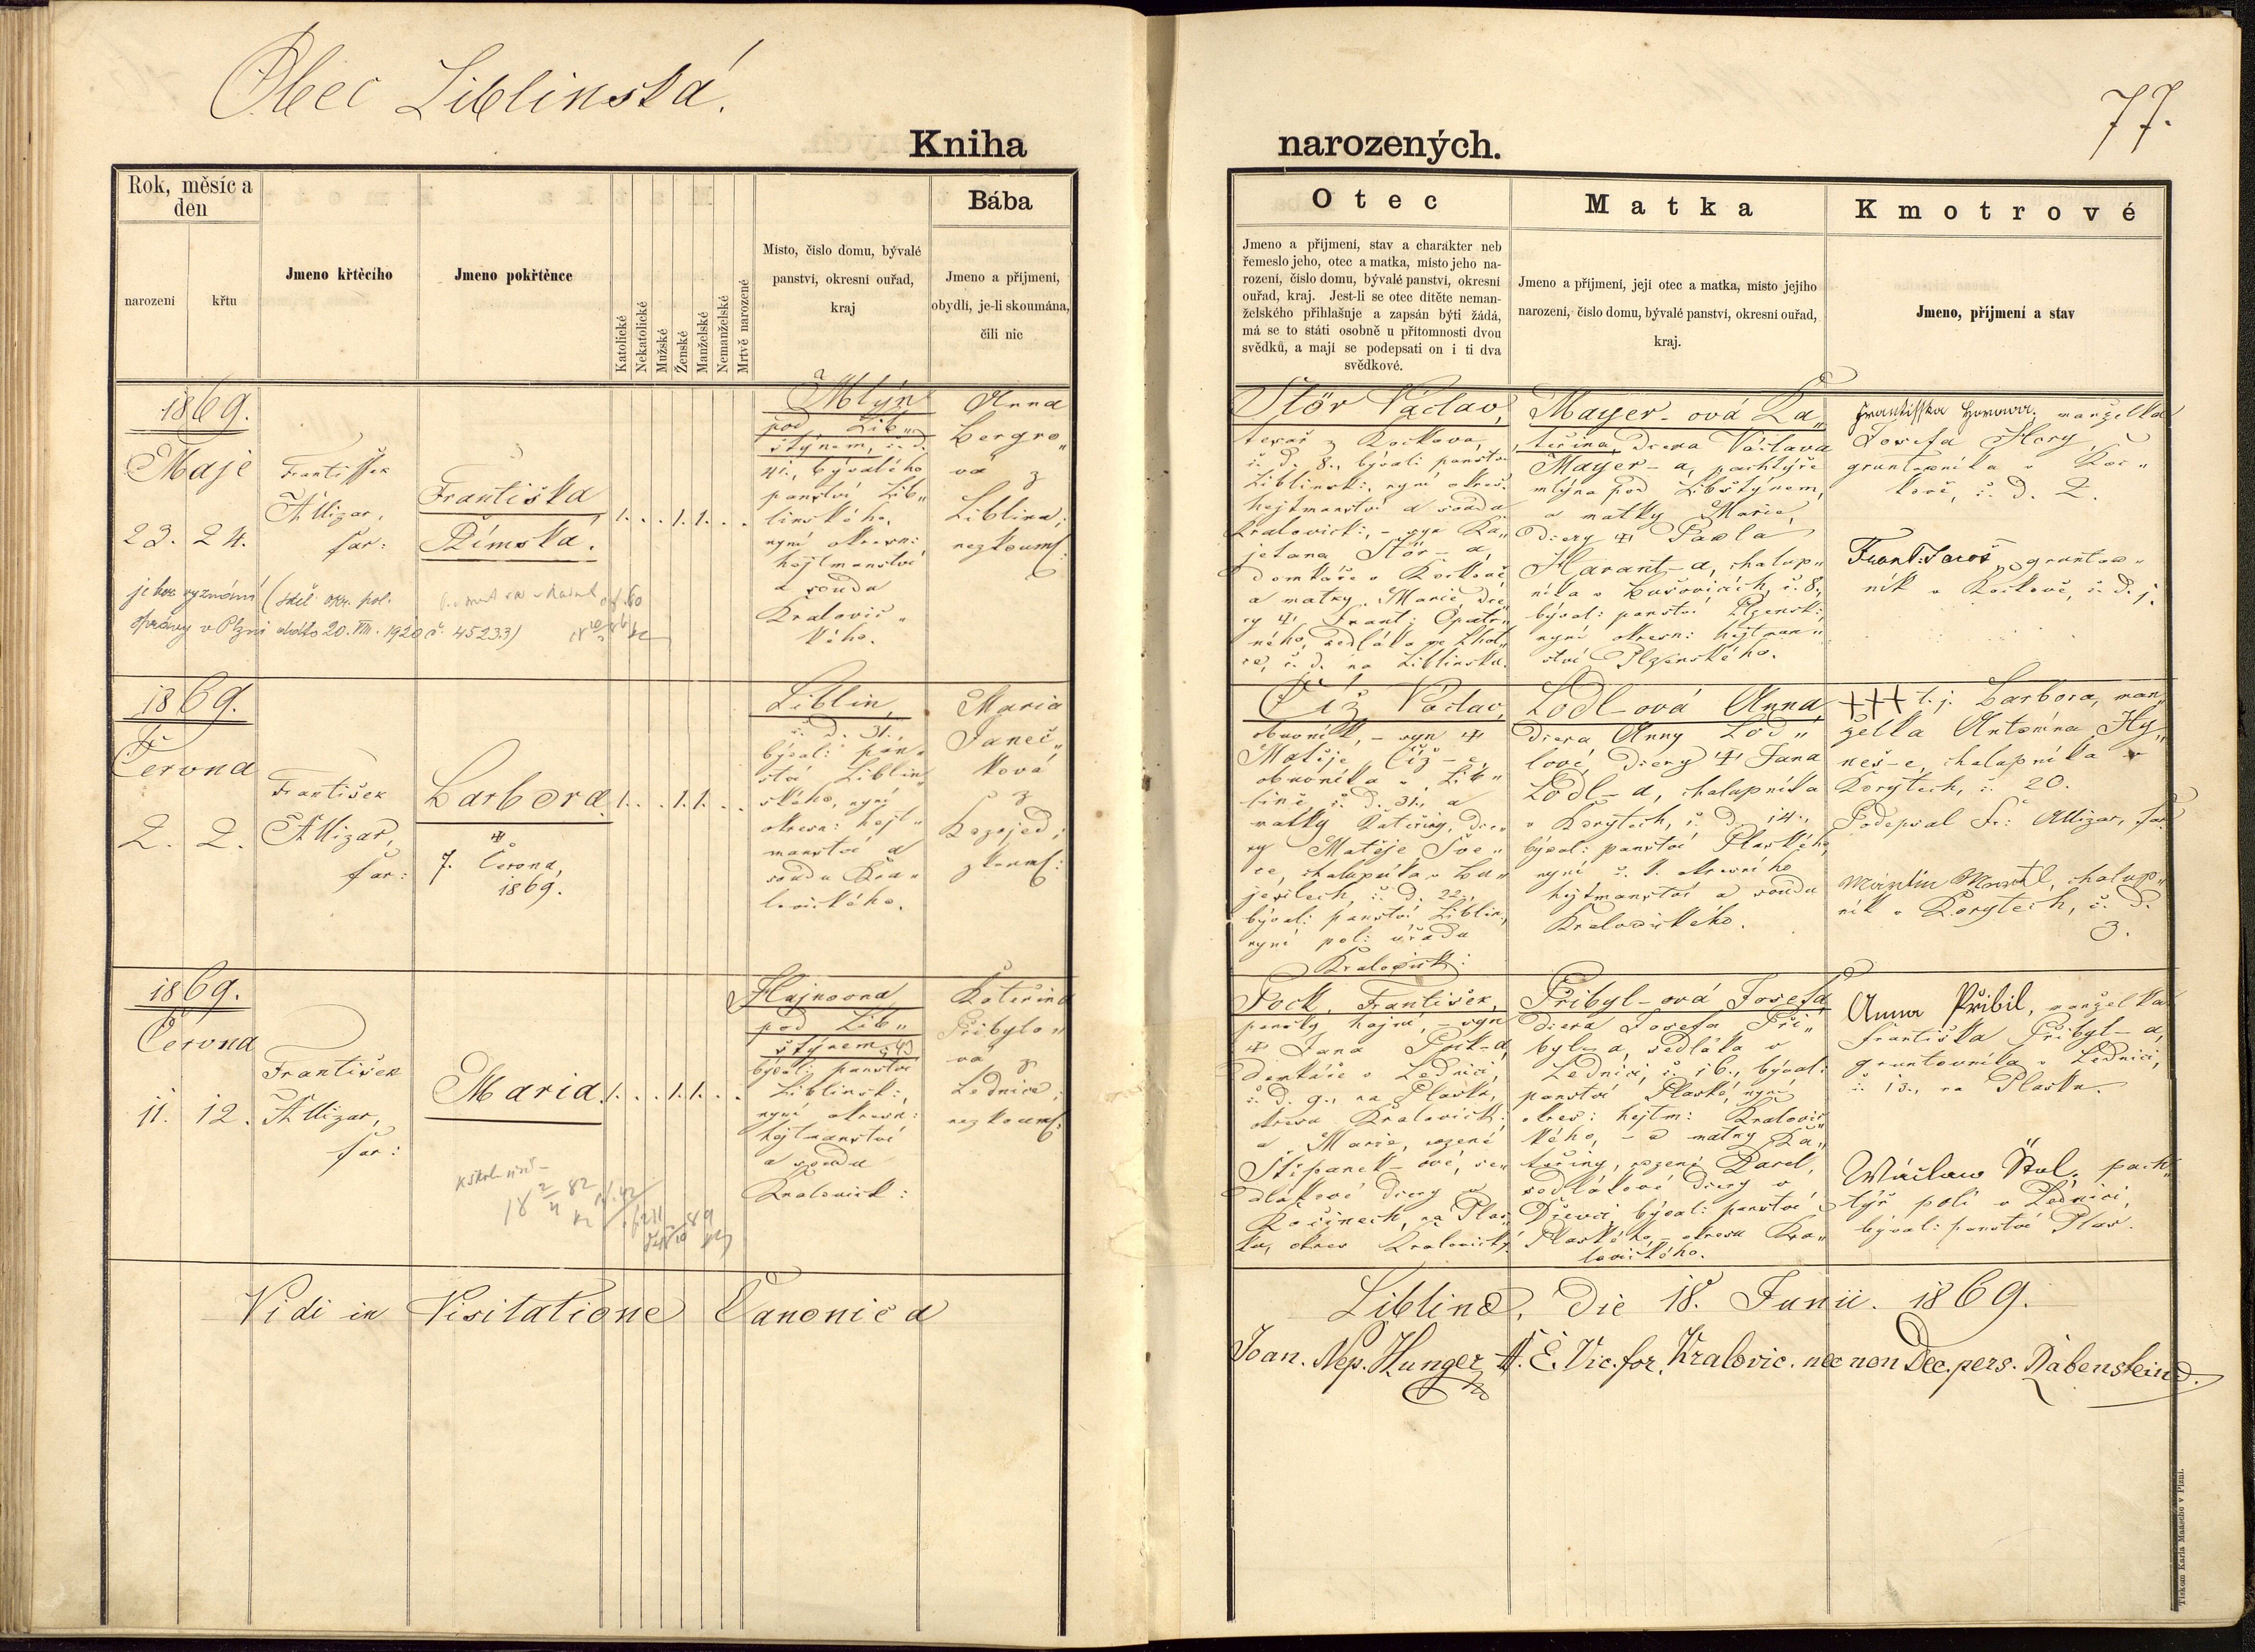 Obec Liblinská.
77.
Kniha narozených.
Rok, měsíc a
den
narození
křtu
Jmeno křtěcího
Jmeno pokřtěnce
Katolické
Nekatolické
Mužské
Ženské
Manželské
Nemanželské
Mrtvě narozené
Místo, číslo domu, bývalé
panství, okresní ouřad,
kraj
Bába
Jmeno a příjmení,
obydlí, je-li skoumána,
čili nic
Otec
Jmeno a příjmení, stav a charakter neb
řemeslo jeho, otec a matka, místo jeho na-
rození, číslo domu, bývalé panství, okresní
ouřad, kraj. Jest-li se otec dítěte neman-
želského přihlašuje a zapsán býti žádá,
má se to státi osobně u přítomnosti dvou
svědků, a mají se podepsati on i ti dva
svědkové.
Matka
Jmeno a příjmení, její otec a matka, místo jejího
narození, číslo domu, bývalé panství, okresní ouřad,
kraj.
Kmotrové
Jmeno, příjmení a stav
1869.
Maje
23. 24.
Františsek
Allizar,
far:
Františka
Římská.
1. . . 1. 1. . .
Mlýn
pod Lib„
štýnem, č. d.
41., bývalého
panství Lib„
linského,
nyní okresn:
hejtmanství
a soudu
Kralovic„
kého.
Anna
Bergro„
vá z
Liblína;
nezkoum:
je bez vyznání (sděl. okr. pol.
správy v Plzni dtto 20. VIII. 1920 č. 45233)
Stör Václav,
č. d. 8., bývalí panství
Liblinsk:, nyní okres:
hejtmanství a soudu
Kralovick:, – syn Ka„
jetana Stör-a,
domkáře v Kočkově,
a matky Marie, dce„
ry Frant: Opatr„
ného, sedláka ze Lhot„
ce, č. d. na Liblinsku.
Mayer-ová Ka„
teřina, dcera Václava
Mayer-a, pachtýře
mlýna pod Libštýnem,
a matky Marie,
dcery Pavla
Harant-a, chalup„
níka v Bušovicích, č. 8.,
býval: panství Plzensk:
nyní okresn: hejtman„
ství Plzenského.
Františka Horova, manželka
Josefa Hory,
gruntovníka v Koč„
kově, č. d. 2.
Frant: Jaroš, gruntov„
ník v Kočkově, č. d. j.
1869.
Června
2. 2.
František
Allizar,
far:
Barbora.
7. Června,
1869.
1. . . 1. 1. . .
Liblín,
č. d. 31.,
býval: pan„
ství Liblin„
ského, nyní
okresn: hejt„
manství a
soudu Kra„
lovického.
Maria
Janeč„
ková
z
Kozojed;
zkoum:
Číž Václav,
obuvník, – syn
Matěje Číž-e,
obuvníka v Lib„
líně, č. d. 31., a
matky Kateřiny, dce„
ry Matěje Šve„
ce, chalupníka v Bu„
jesilech, č. d. 22.,
býval: panství Liblin,
nyní pol: úřadu
Kralovick:
Lodl-ová Anna,
dcera Anny Lod„
lové, dcery Jana
Lodl-a, chalupníka
v Korytech, č. d. 14.,
býval: panství Plaského,
nyní č. k. okresního
hejtmanství a soudu
Kralovického.
+++ t. j. Barbora, man„
želka Antonína Hy„
neš-e, chalupníka v
Korytech, č. 20.
Podepsal Fr: Allizar, far:
chalup„
ník v Korytech, č. d.
3.
1869.
Června
11. 12.
František
Allizar,
far:
Maria.
1. . . 1. 1. . .
Hajnovna
pod Lib„
štýnem, č. 43
býval: panství
Liblinsk:,
nyní okresn:
hejtmanství
a soudu
Kralovick:
Kateřina
Přibylo„
vá z
Lednice;
nezkoum:
Pock František,
panský hajný, – syn
Jana Pock-a,
domkáře v Lednici,
č. d. 9., na Plasku,
okresu Kralovick:
a Marie, rozené
Štěpanek-ové, se„
dlákové dcery v
Kočínech, na Plas„
ku, okres Kralovický.
Přibyl-ová Josefa,
dcera Josefa Při„
byl-a, sedláka v
Lednici, č. 16., býval:
panství Plaské, nyní
okres: hejtm: Kralovic„
kého, – a matky Ka„
teřiny, rozené Karel,
sedlákové dcery v
Dřevci, býval: panství
Plaského, – okresu Kra„
lovického.
Anna Přibil, manželka
Františka Přibyl-a,
gruntovníka v Lednici,
č. 13., na Plasku.
Wáclaw Štol, pach„
týř polí v Lednici,
býval: panství Plas.
Vidi in Visitatione Canonica Liblinæ, die 18. Junii. 1869.
Joan. Nep. Hunger, A. E. Vic. for. Kralovic. nec non Dec. pers. Rabenstein.
Tiskem Karla Maasche v Plzni.